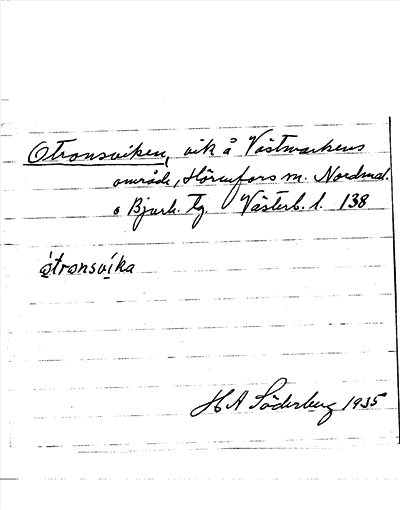 Otronsviken, vik å Västmarkens
område, Hörnefors m. Nordmal.
o Bjurh. tg. Västerb. l. 138
ò́tronsvíka
H A Söderberg 1935